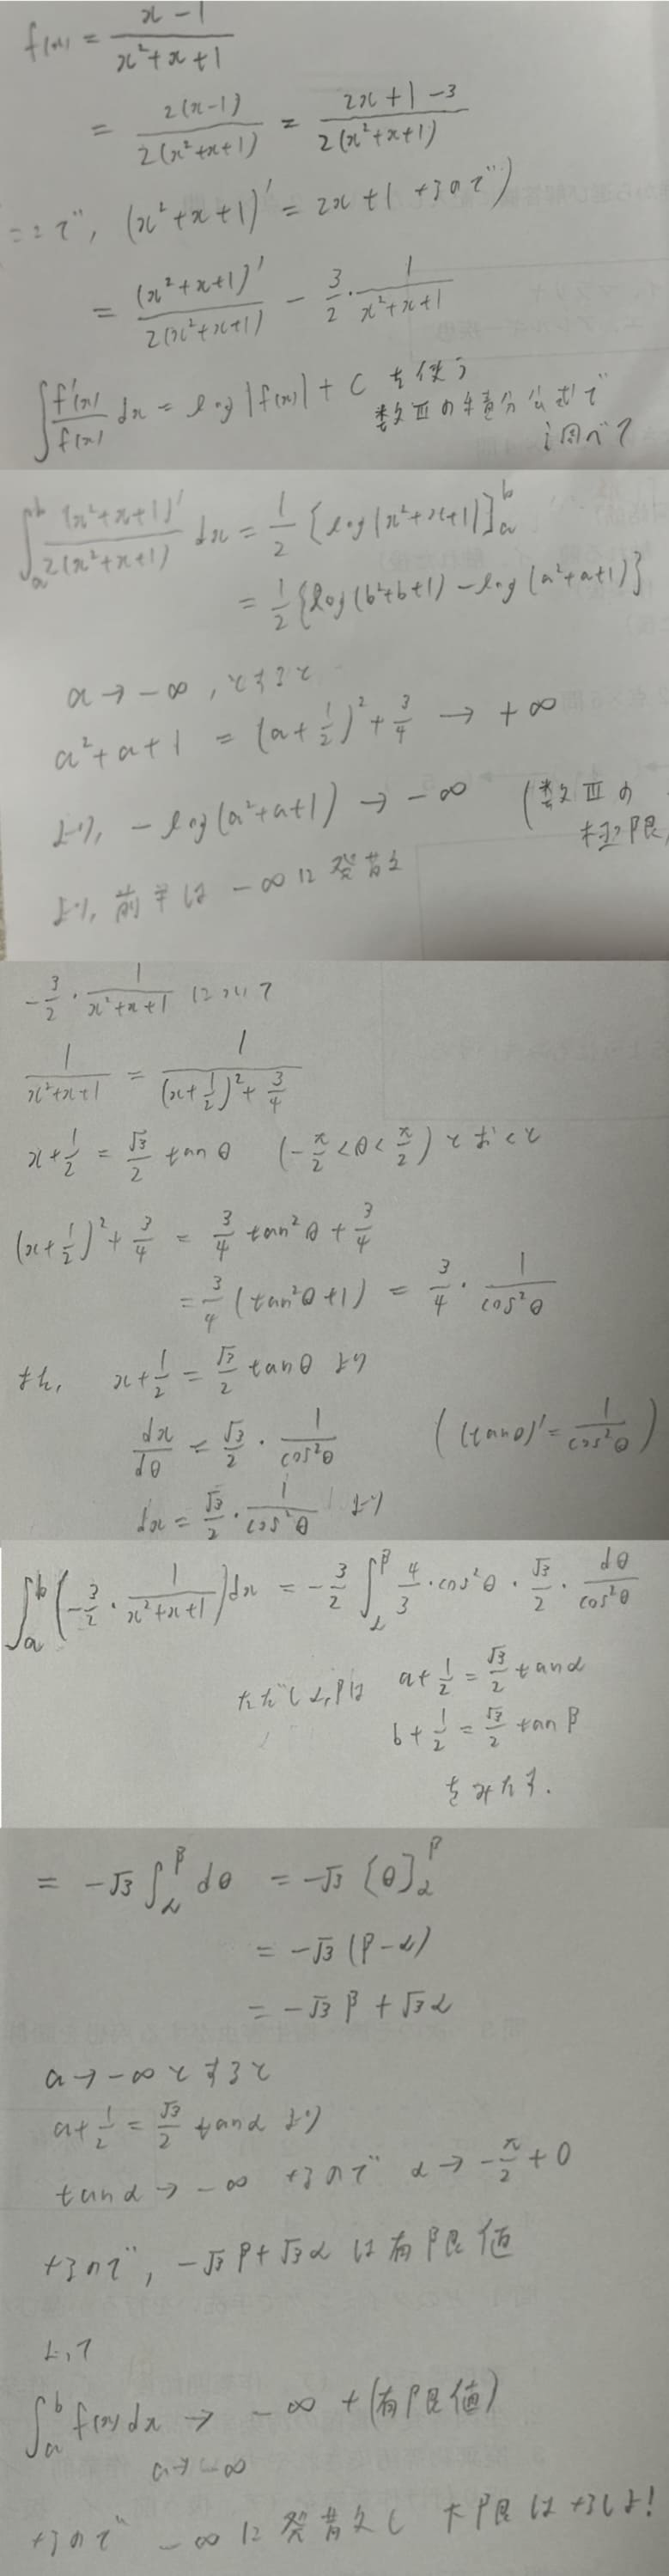 f(x) = \frac{x-1}{x^2+x+1}
= \frac{2(x-1)}{2(x^2+x+1)} = \frac{2x+1-3}{2(x^2+x+1)}
ここで, (x^2+x+1)' = 2x+1 なので
= \frac{(x^2+x+1)'}{2(x^2+x+1)} - \frac{3}{2}・\frac{1}{x^2+x+1}
∫\frac{f'(x)}{f(x)} dx = log|f(x)| + C を使う
数Ⅲの積分公式で
調べて
∫_a^b \frac{(x^2+x+1)'}{2(x^2+x+1)} dx = \frac{1}{2} [log(x^2+x+1)]_a^b
= \frac{1}{2}{log(b^2+b+1) - log(a^2+a+1)}
a → -∞, とすると
a^2+a+1 = (a+\frac{1}{2})^2+\frac{3}{4} → +∞
より, -log(a^2+a+1) → -∞ (数Ⅲの
極限,
より, 前半は -∞に発散
-\frac{3}{2}・\frac{1}{x^2+x+1} について
\frac{1}{x^2+x+1} = \frac{1}{(x+\frac{1}{2})^2+\frac{3}{4}}
x+\frac{1}{2} = \frac{√3}{2} tanθ (-\frac{π}{2}<θ<\frac{π}{2}) とおくと
(x+\frac{1}{2})^2+\frac{3}{4} = \frac{3}{4} tan^2θ+\frac{3}{4}
= \frac{3}{4}(tan^2θ+1) = \frac{3}{4}・\frac{1}{cos^2θ}
また, x+\frac{1}{2} = \frac{√3}{2} tanθ より
\frac{dx}{dθ} = \frac{√3}{2}・\frac{1}{cos^2θ} ((tanθ)'=\frac{1}{cos^2θ})
dx = \frac{√3}{2}・\frac{1}{cos^2θ} より
∫_a^b(-\frac{3}{2}・\frac{1}{x^2+x+1})dx = -\frac{3}{2}∫_α^β \frac{4}{3}・cos^2θ・\frac{√3}{2}・\frac{dθ}{cos^2θ}
ただしα,βは a+\frac{1}{2}=\frac{√3}{2}tanα
b+\frac{1}{2}=\frac{√3}{2}tanβ
をみたす.
= -√3∫_α^β dθ = -√3[θ]_α^β
= -√3(β-α)
= -√3β+√3α
a→-∞とすると
a+\frac{1}{2}=\frac{√3}{2}tanαより
tanα→-∞ なので α→-\frac{π}{2}+0
なので, -√3β+√3αは有限値
よって
∫_a^b f(x)dx → -∞+(有限値)
a→-∞
なので -∞に発散し 下限はなしよ!